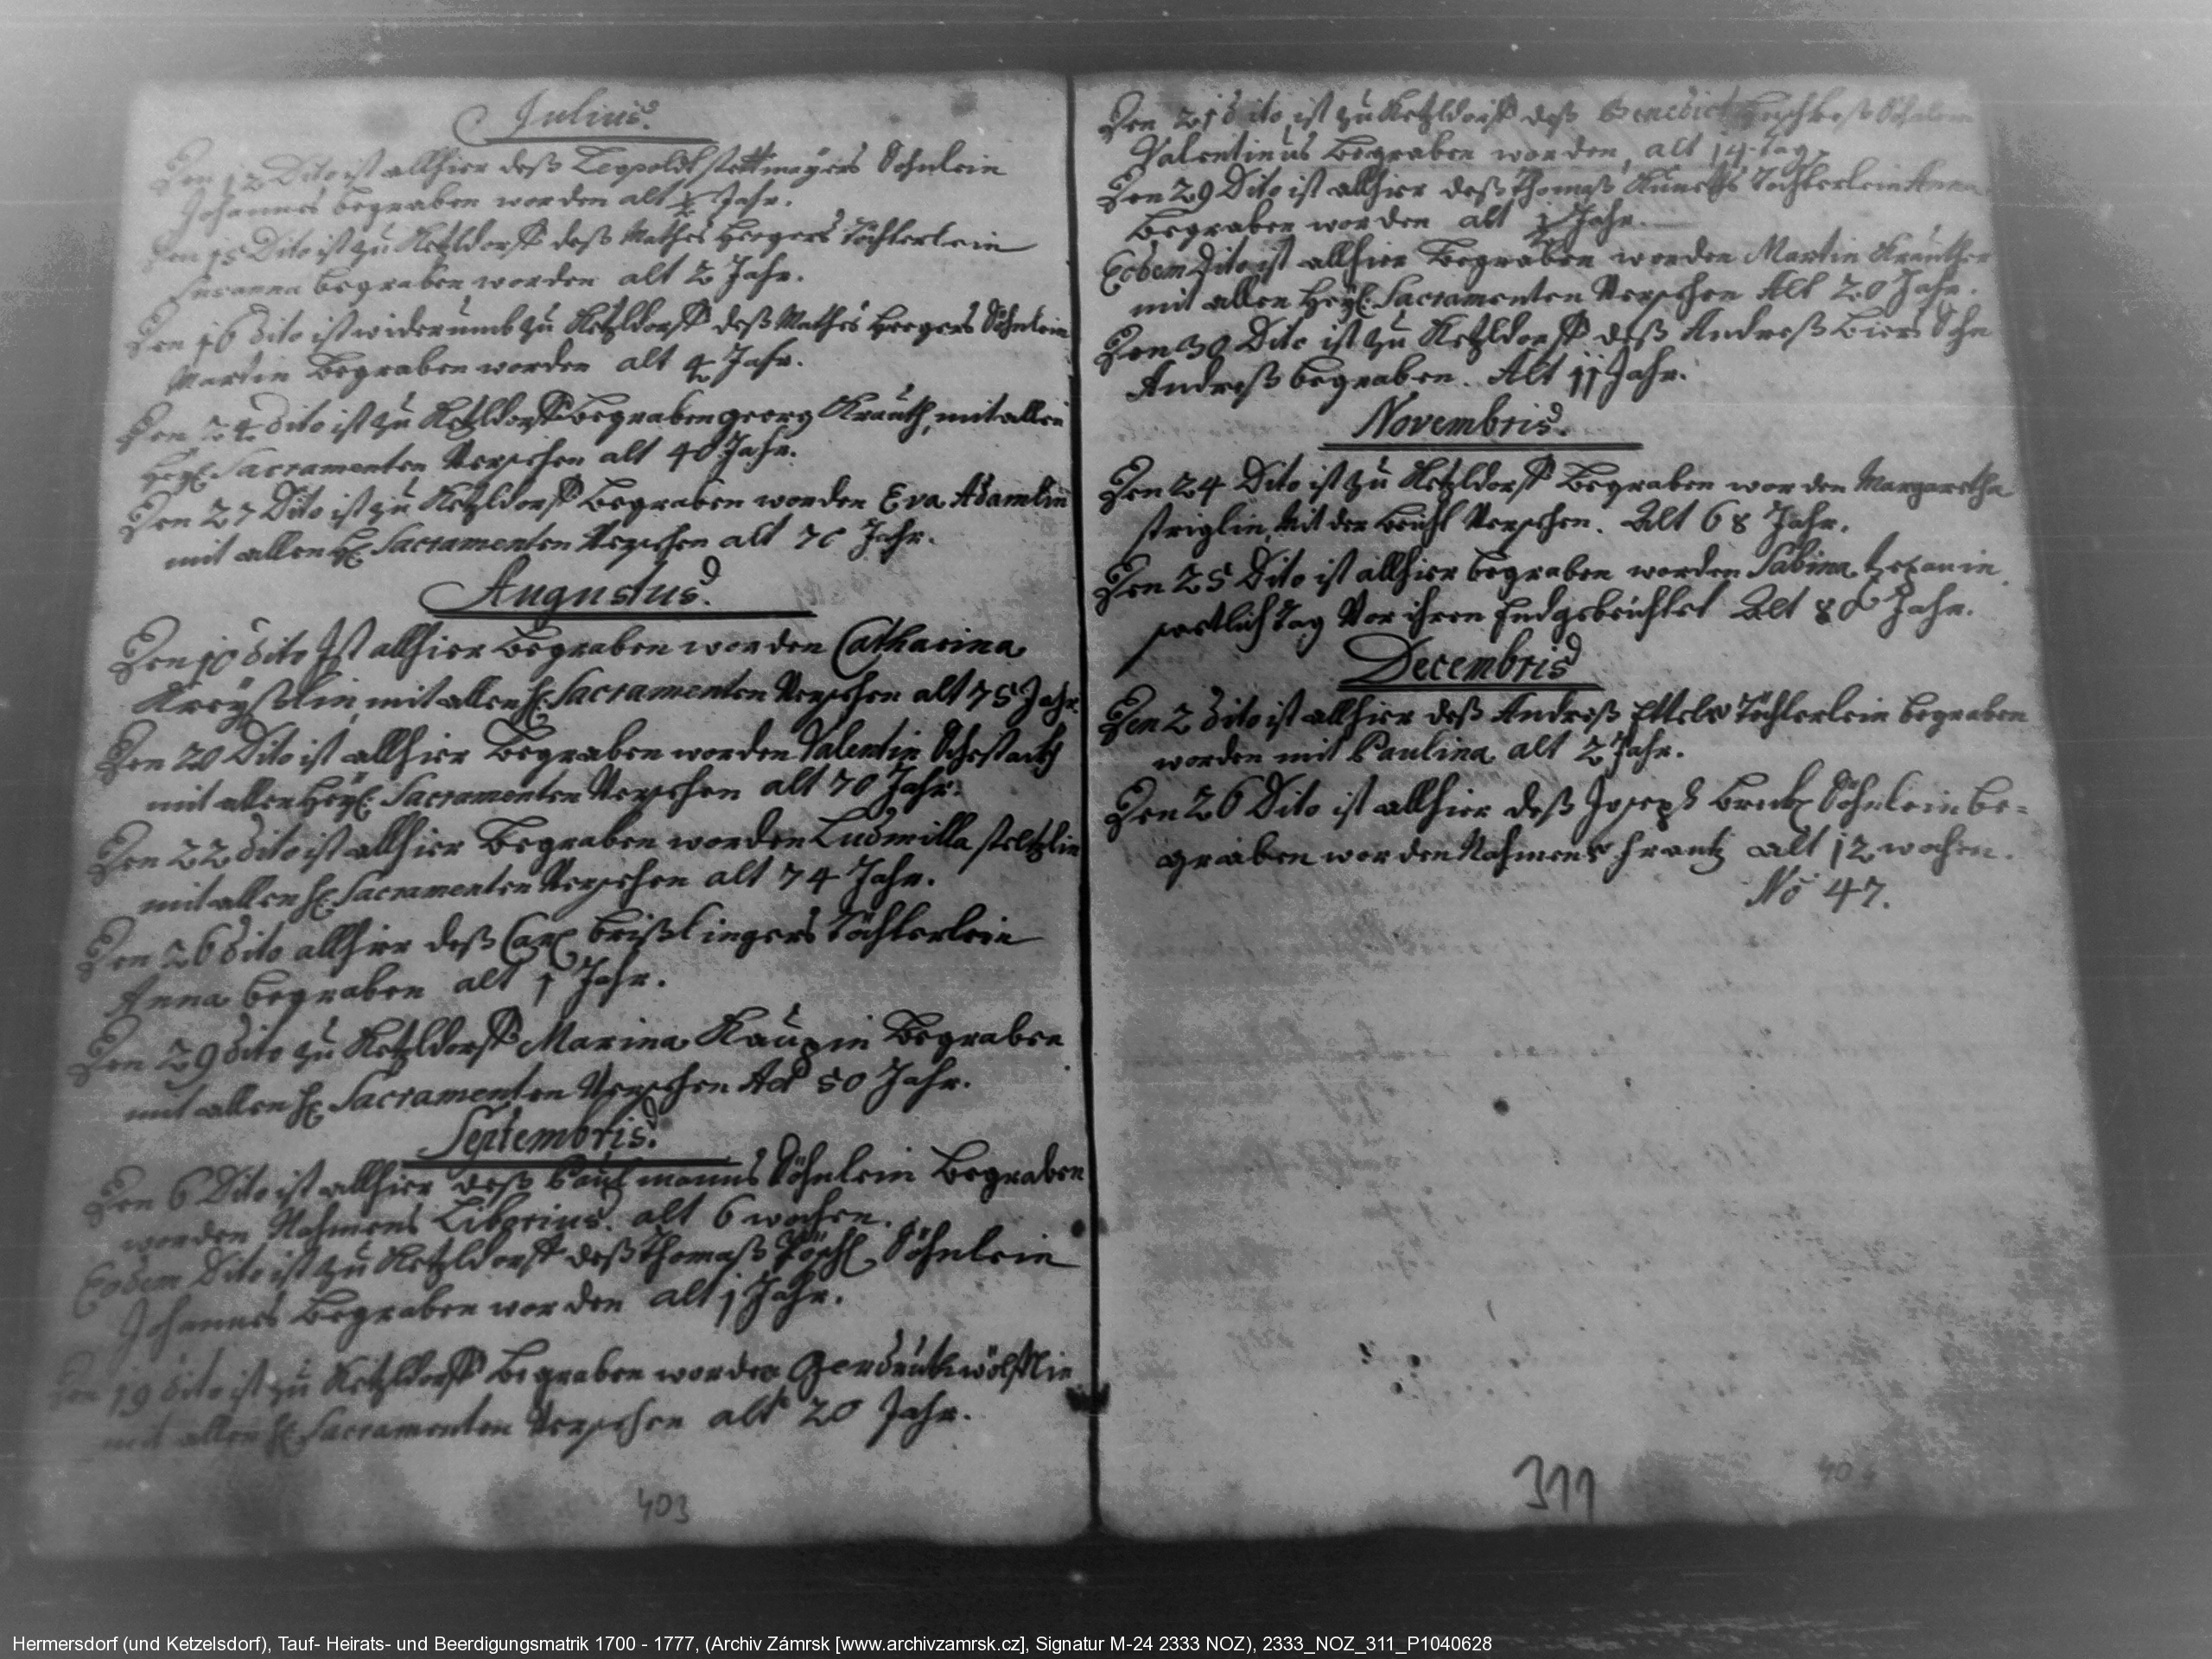 Julius.
Den 12 Dito ist allhier deß Leopoldt stettmayers Söhnlein
Johannes begraben worden alt ½ Jahr.
Den 15 Dito ist zu Ketzldorff deß Mathes Heegers Töchterlein
Susanna begraben worden alt 2 Jahr.
Den 16 dito ist widerumb zu Ketzldorff deß Mathes Heegers Söhnlein
Martin Begraben worden alt 4 Jahr.
Den 24 dito ist zu Ketzldorff Begraben georg Krauth, mit allen
Heyl. Sacramenten Versehen alt 40 Jahr.
Den 27 Dito ist zu Ketzldorff Begraben worden Eva Adamlin
mit allen H. Sacramenten Versehen alt 70 Jahr.
Augustus.
Den 10 dito Ist allhier Begraben worden Catharina
mit allen H. Sacramenten Versehen alt 75 Jahr
Den 20 Dito ist allhier Begraben worden Valentin
mit allen Heyl. Sacramenten Versehen alt 70 Jahr.
Den 22 dito ist allhier Begraben worden Ludmilla steltzlin
mit allen H. Sacramenten Versehen alt 74 Jahr.
Den 26 dito allhier deß Carl brißlingers Töchterlein
Anna begraben alt 1 Jahr.
Den 29 dito zu Ketzldorff Marina Begraben
mit allen H. Sacramenten Versehen Alt 50 Jahr.
Septembris.
Den 6 Dito ist allhier deß Paul manns Söhnlein Begraben
worden Nahmens Liborius. alt 6 wochen.
Eodem Dito ist zu Ketzldorff deß Thomaß Söhnlein
Johannes Begraben worden alt 1 Jahr.
Den 19 dito ist zu Ketzldorff Begraben worden Gerdruth wölfflin
mit allen H. Sacramenten Versehen alt 20 Jahr.
403
Den 21 dito ist zu Ketzldorff deß Benedict Söhnlein
Valentinus Begraben worden, alt 14 Tag.
Den 29 Dito ist allhier deß Thomaß Töchterlein Anna
Begraben worden alt ½ Jahr.
Eodem Dito ist allhier Begraben worden Martin
mit allen Heyl. Sacramenten Versehen Alt 20 Jahr.
Den 30 Dito ist zu Ketzldorff deß Andreß Biers Sohn
Andreß begraben. Alt 11 Jahr.
Novembris.
Den 24 Dito ist zu Ketzldorff Begraben worden Margaretha
striglin, Mit der Beicht Versehen. Alt 68 Jahr.
Den 25 Dito ist allhier begraben worden Sabina
Tag Vor ihren End gebeichtet Alt 80 Jahr.
Decembris
Den 2 dito ist allhier deß Andreß Ettels Töchterlein begraben
worden mit Paulina alt 2 Jahr.
Den 26 Dito ist allhier deß Joseph Söhnlein be=
graben worden Nahmens Frantz alt 12 wochen.
No 47.
311
Hermersdorf (und Ketzelsdorf), Tauf- Heirats- und Beerdigungsmatrik 1700 - 1777, (Archiv Zámrsk [www.archivzamrsk.cz], Signatur M-24 2333 NOZ), 2333_NOZ_311_P1040628